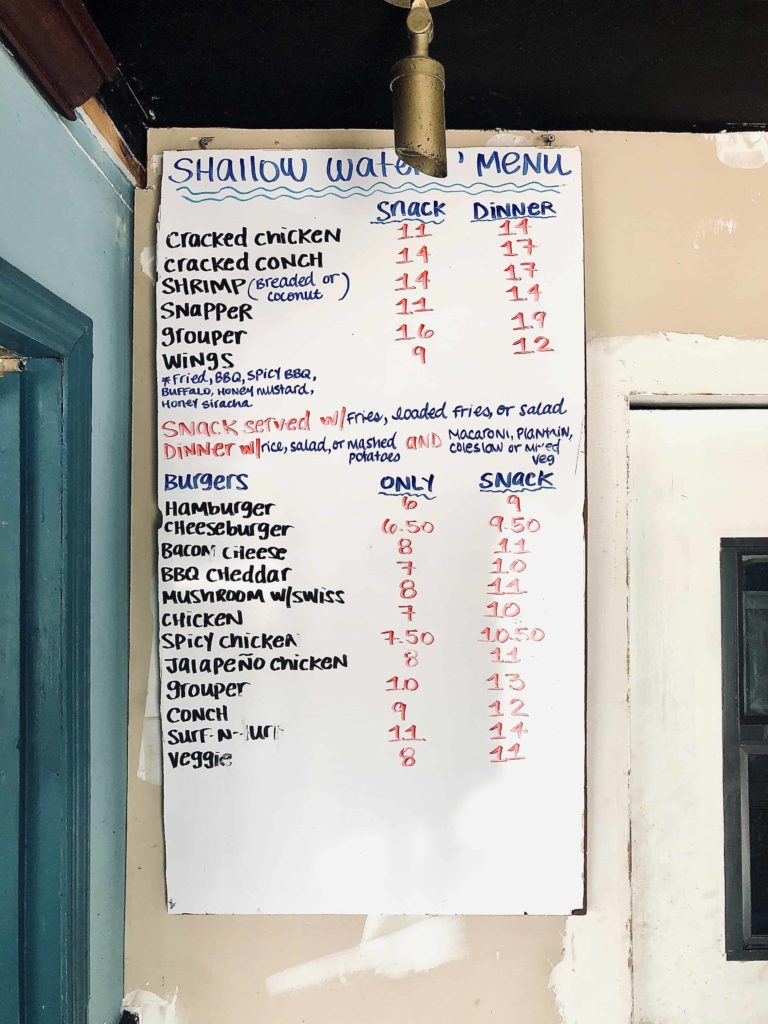 SHALLOW MENU
SNACK DINNER
CRACKED CHICKEN 11 14
CRACKED CONCH 14 17
SHRIMP (BREADED or coconut) 14 17
SNAPPER 11 14
grouper 16 19
WINGS 9 12
*Fried, BBQ, SPICY BBQ,
BUFFALO, HONEY MUSTARD,
HONEY SIRACHA
SNACK SERVED W/ FRIES, Loaded FRIES, or SALAD
DINNER W/ rice, SALAD, or MASHED POTATOES AND MACARONI, PLANTAIN,
COLESLAW or VEG
BURGERS ONLY SNACK
HAMBURGER 6 9
CHEESEBURGER 6.50 9.50
BACON CHEESE 8 11
BBQ CHEDDAR 7 10
MUSHROOM W/SWISS 8 11
CHICKEN 7 10
SPICY CHICKEN 7.50 10.50
JALAPEÑO CHICKEN 8 11
grouper 10 13
CONCH 9 12
SURF-N- 11 14
Veggie 8 11